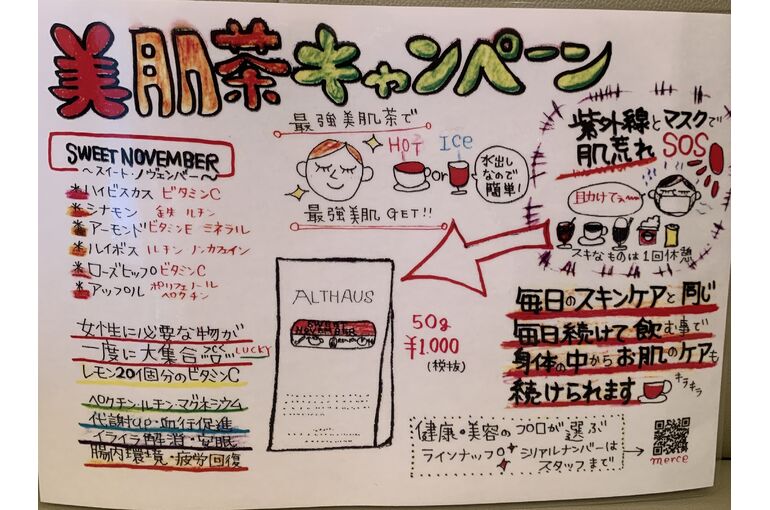 美肌茶キャンペーン
SWEET NOVEMBER
～スイート・ノヴェンバー～
＊ハイビスカス ビタミンC
＊シナモン 鉄 ルチン
＊アーモンド ビタミンE ミネラル
＊ルイボス ルチン ノンカフェイン
＊ローズヒップ ビタミンC
＊アップル ポリフェノール ペクチン
女性に必要な物が
一度に大集合 LUCKY
レモン20個分のビタミンC
ペクチン・ルチン・マグネシウム
代謝up・血行促進
イライラ解消・安眠
腸内環境・疲労回復
最強美肌茶で
HOT or ICE
水出し
なので
簡単!
最強美肌GET!!
ALTHAUS
SWEET
NOVEMBER
50g
¥1,000
(税抜)
紫外線とマスクで
肌荒れ SOS
スキなものは1回休憩
毎日のスキンケアと同じ
毎日続けて飲む事で
身体の中からお肌のケアも
続けられます
キラキラ
健康・美容のプロが選ぶ
ラインナップ シリアルナンバーは
スタッフまで
merce